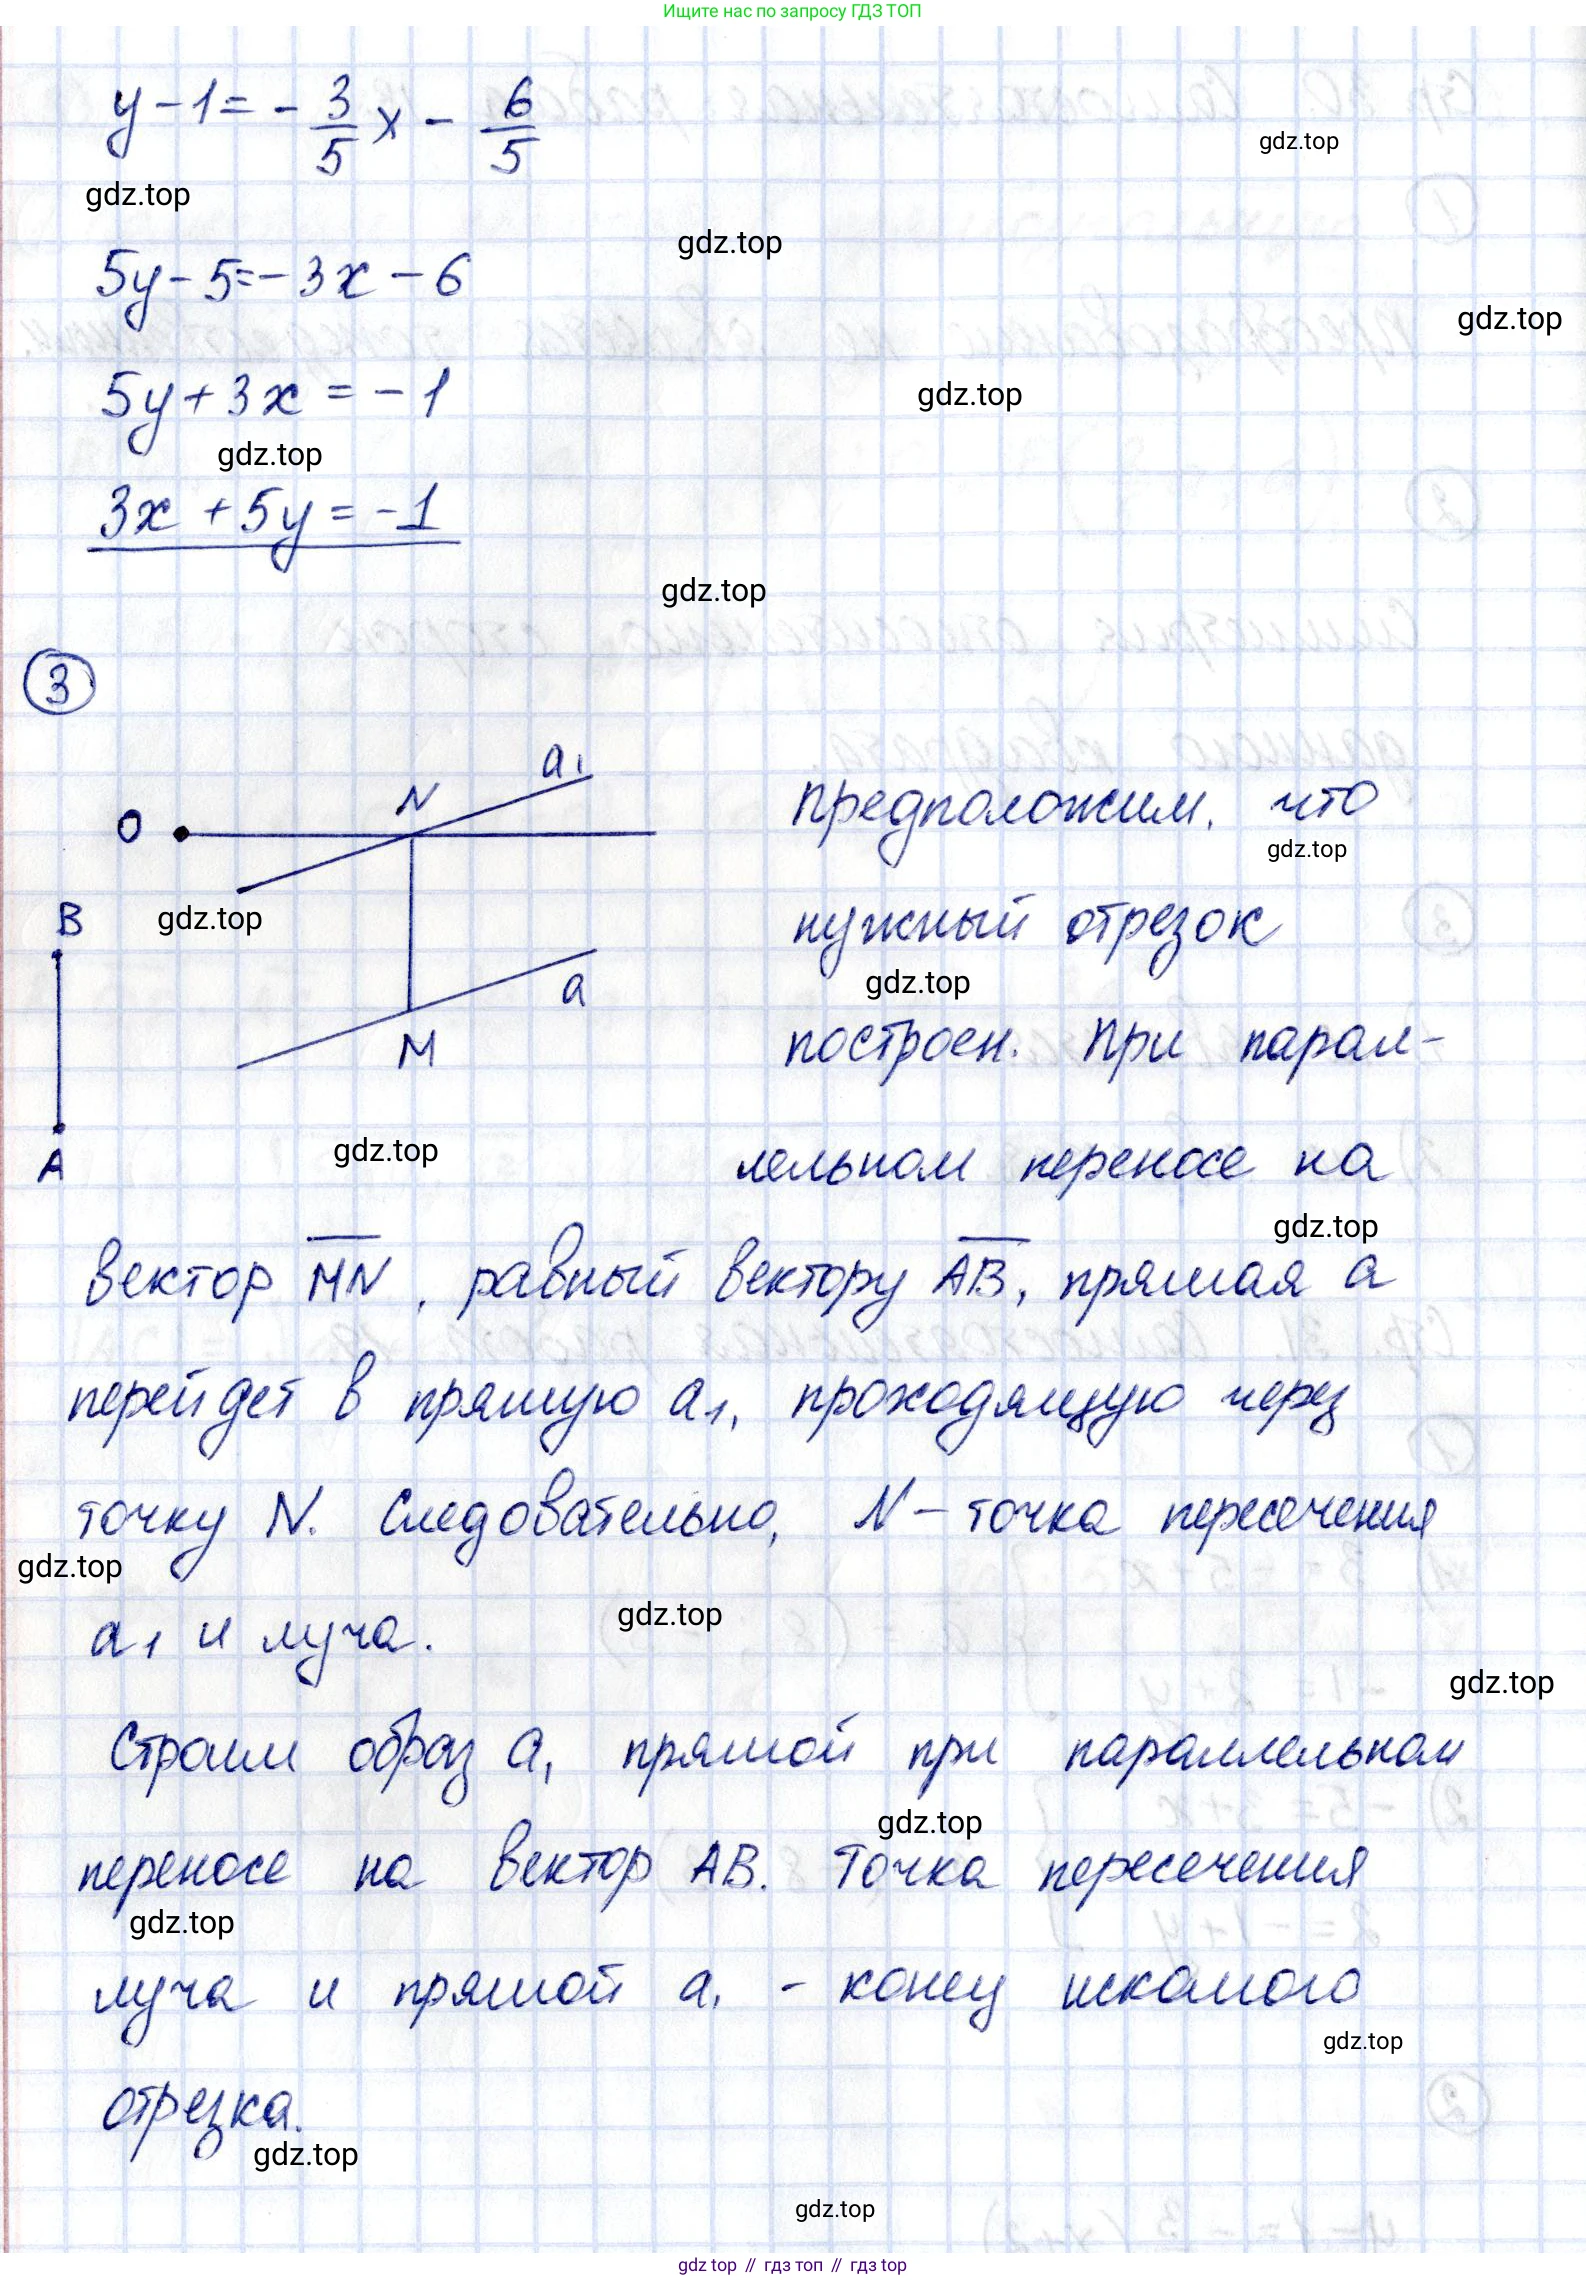 Ищите нас по запросу ГДЗ ТОП
y - 1 = - 3/5 x - 6/5
gdz.top
gdz.top
gdz.top
5y - 5 = - 3x - 6
gdz.top
5y + 3x = - 1
gdz.top
gdz.top
3x + 5y = -1
gdz.top
3
a₁
N
O
B
a
M
A
Предположим, что
gdz.top
gdz.top
нужный отрезок
gdz.top
построен. При парал-
gdz.top
лельном переносе на
gdz.top
вектор MN, равный вектору AB, прямая a
перейдет в прямую a₁, проходящую через
точку N. Следовательно, N – точка пересечения
gdz.top
gdz.top
a₁ и луча.
gdz.top
Строим образ a₁ прямой при параллельном
gdz.top
переносе на вектор AB. Точка пересечения
gdz.top
луча и прямой a₁ - конец искомого
gdz.top
отрезка.
gdz.top
gdz.top
gdz top // гдз топ // gdz top